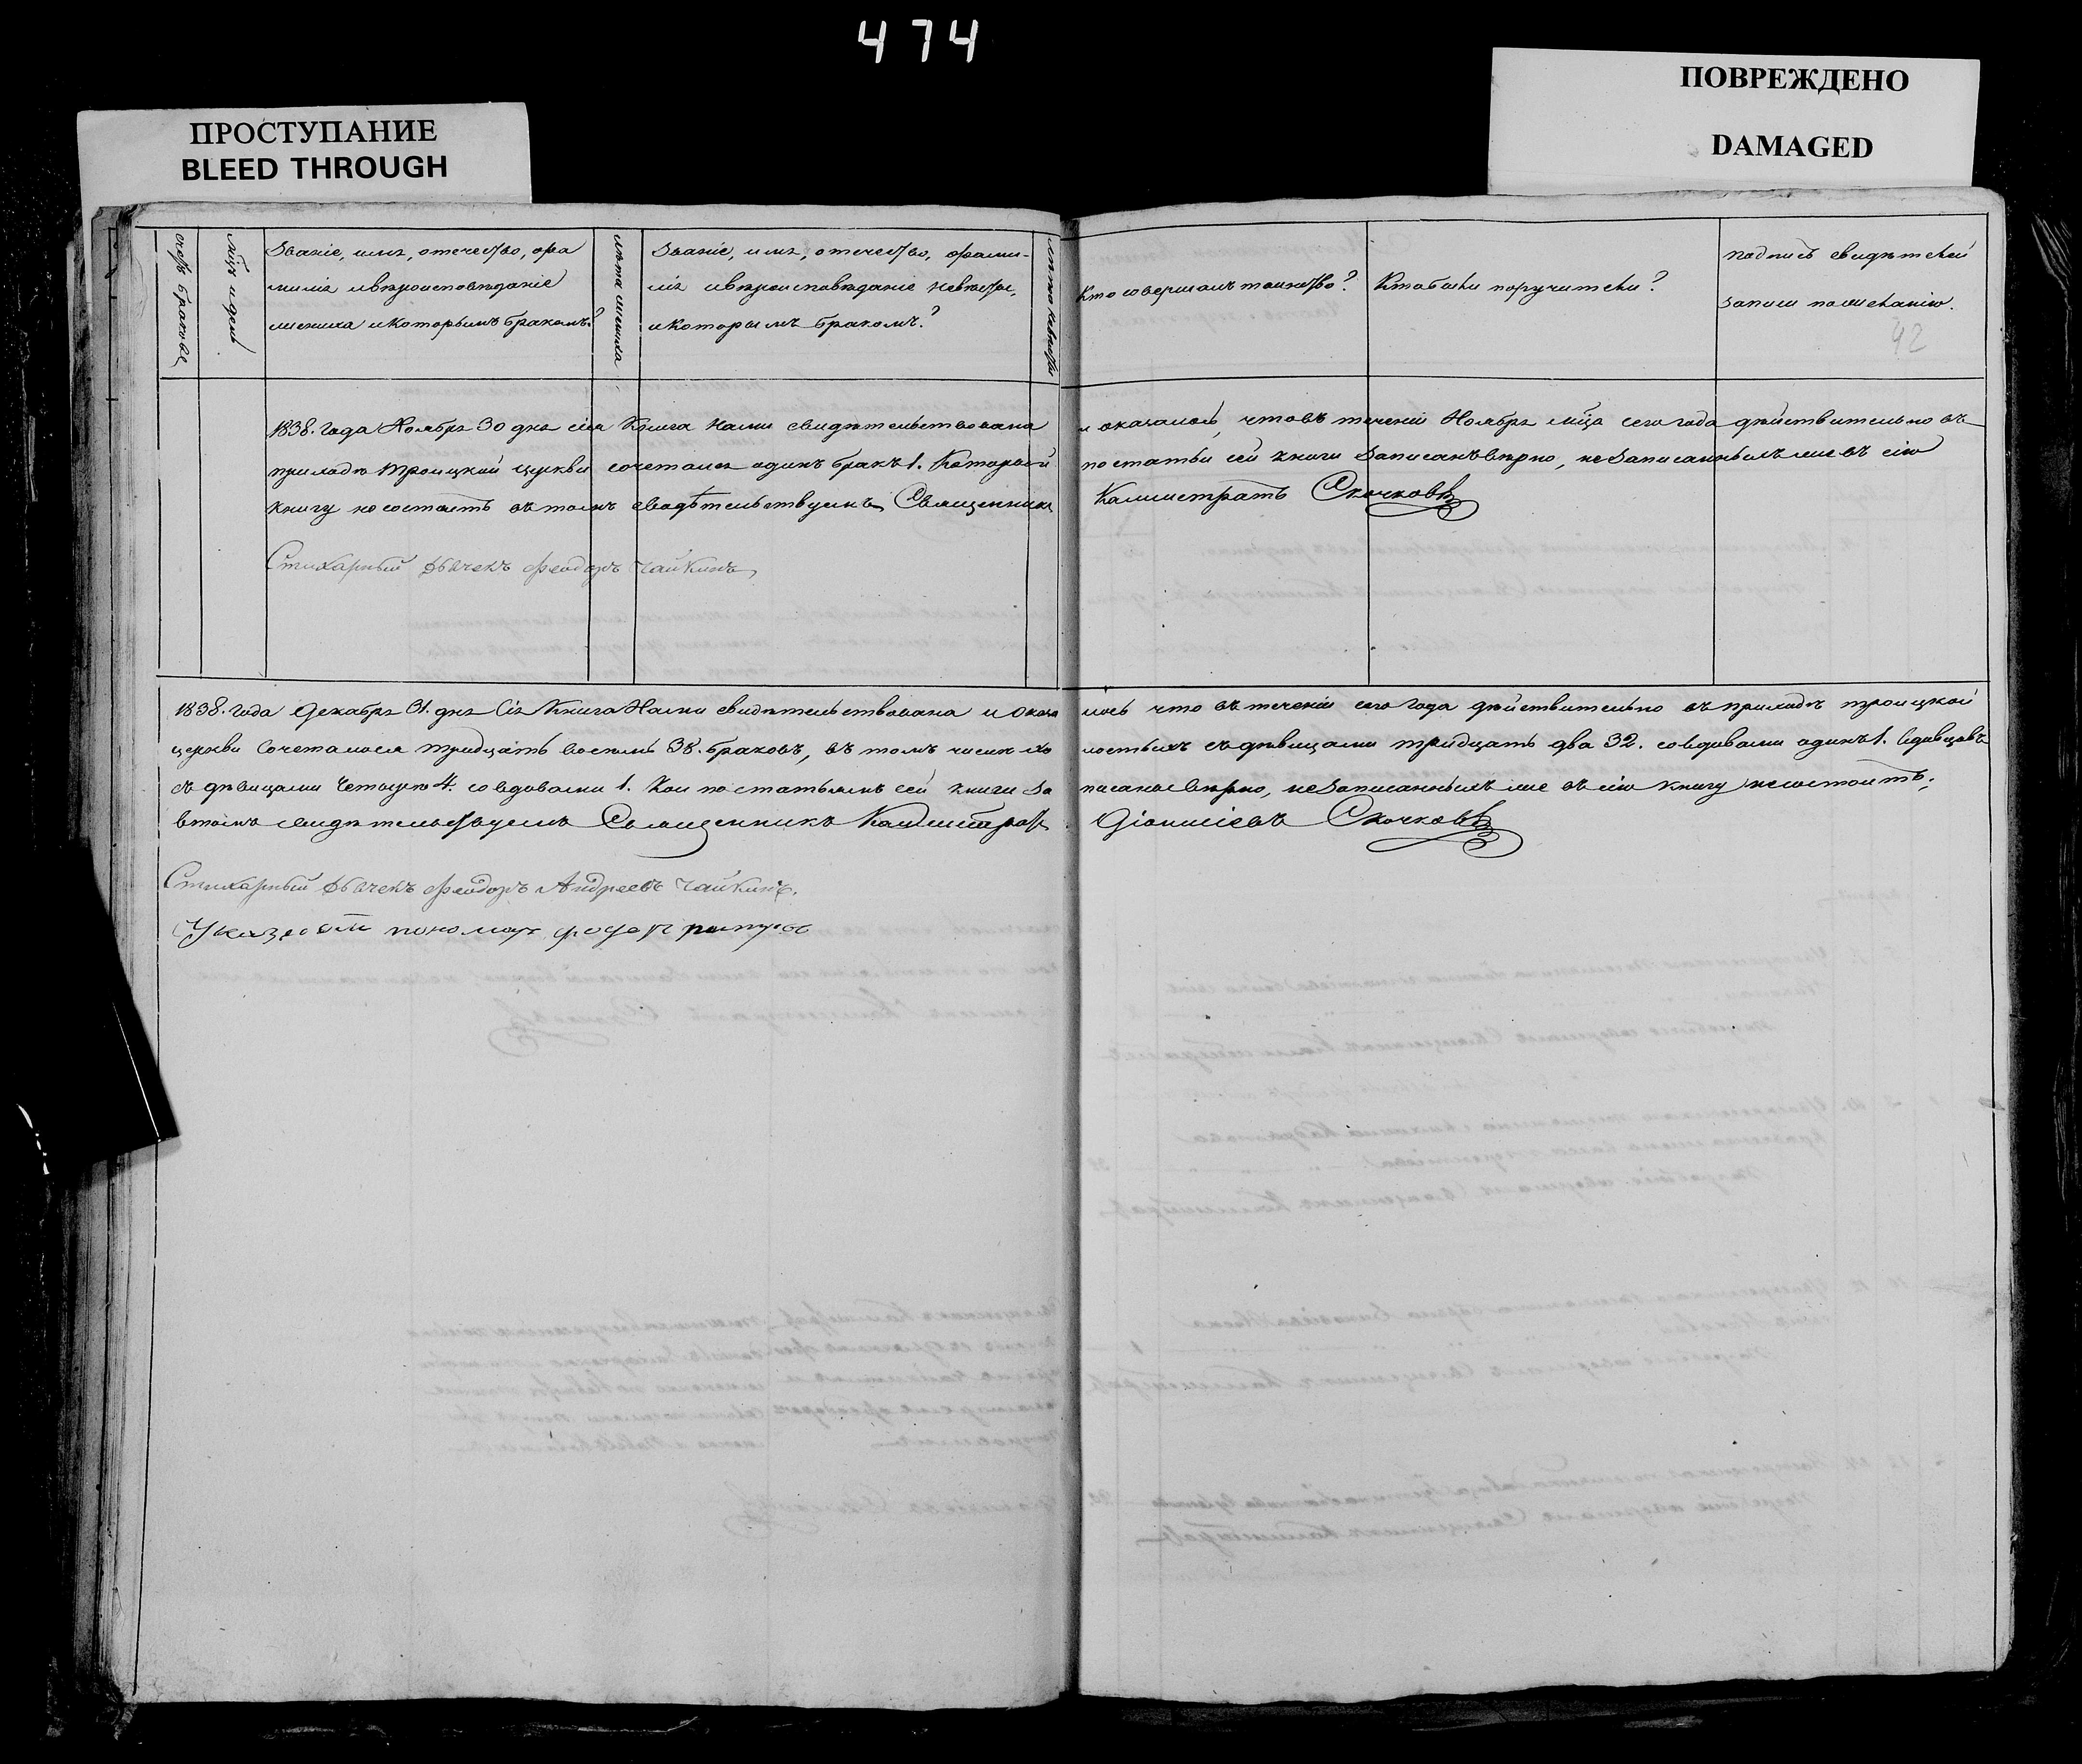 474
ПРОСТУПАНИЕ
BLEED THROUGH
ПОВРЕЖДЕНО
DAMAGED
счетъ браковъ
мѣцъ и день
Званіе, имя, отечество, фа
милія и вѣроисповѣданіе
жениха и которымъ бракомъ?
лѣта жениха
Званіе, имя, отечество, фами-
лія и вѣроисповѣданіе невѣсты,
и которымъ бракомъ?
лѣта невѣсты
Кто совершалъ таинство?
Кто были поручители?
подпись свидѣтелей
записи по желанію.
42
1838. года Ноября 30 дня сія Книга нами свидѣтельствована и оказалось, что въ теченіи Ноября мѣца сего года дѣйствительно въ
приходѣ Троицкой церкви сочетался одинъ бракъ 1. Который по статьи сей книги записанъ вѣрно, не записанныхъ же въ сію
книгу не состоитъ въ томъ свидѣтельствуемъ Священникъ Каллистратъ Скочковъ
Стихарный дьячекъ Феодоръ Чайкинъ
1838. года Декабря 31. дня Сія Книга Нами свидѣтельствована и оказалось что въ теченіи сего года дѣйствительно въ приходѣ троицкой
церкви Сочеталося тридцать восемь 38. браковъ, въ томъ числѣ холостыхъ съ дѣвицами тридцать два 32. со вдовами одинъ 1. Вдовцовъ
съ дѣвицами Четыре 4. со вдовами 1. Кои по статьямъ сей книги записаны вѣрно, не записанныхъ же въ сію книгу не состоитъ,
въ томъ свидѣтельствуемъ Священникъ Каллистратъ Діонисіевъ Скочковъ
Стихарный дьячекъ Феодоръ Андреевъ Чайкинъ.
пономарь